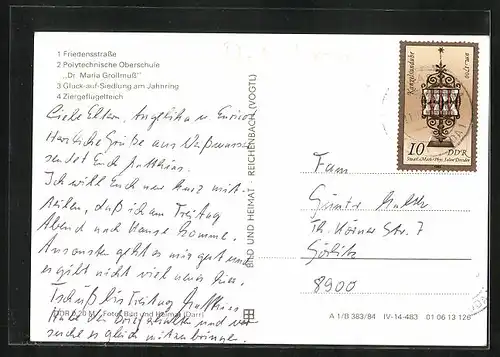 1 Friedensstraße
2 Polytechnische Oberschule
„Dr. Maria Grollmuß"
3 Glück-auf-Siedlung am Jahnring
4 Ziergeflügelteich
Liebe Eltern, Angelika u. Enrico!
Herzliche Grüße aus
sendet Euch Matthias.
Ich will Euch nur kurz mit-
teilen, daß ich am Freitag
Abend nach Hause komme.
Ansonsten geht es mir gut und
es gibt nicht viel neues hier.
Tschüß bis Freitag Matthias
Habe den Brief erhalten und ver-
suche es gleich mitzubringen.
DDR 0,20 M Foto: Bild und Heimat (Darr)
BILD UND HEIMAT · REICHENBACH (VOGTL)
Kanzelsanduhr
um 1700
10 DDR
Staatl. Math.-Phys. Salon Dresden
Fam
Günter
Th. Körner Str. 7
Görlitz
8900
A 1/B 383/84 IV-14-483 01 06 13 126